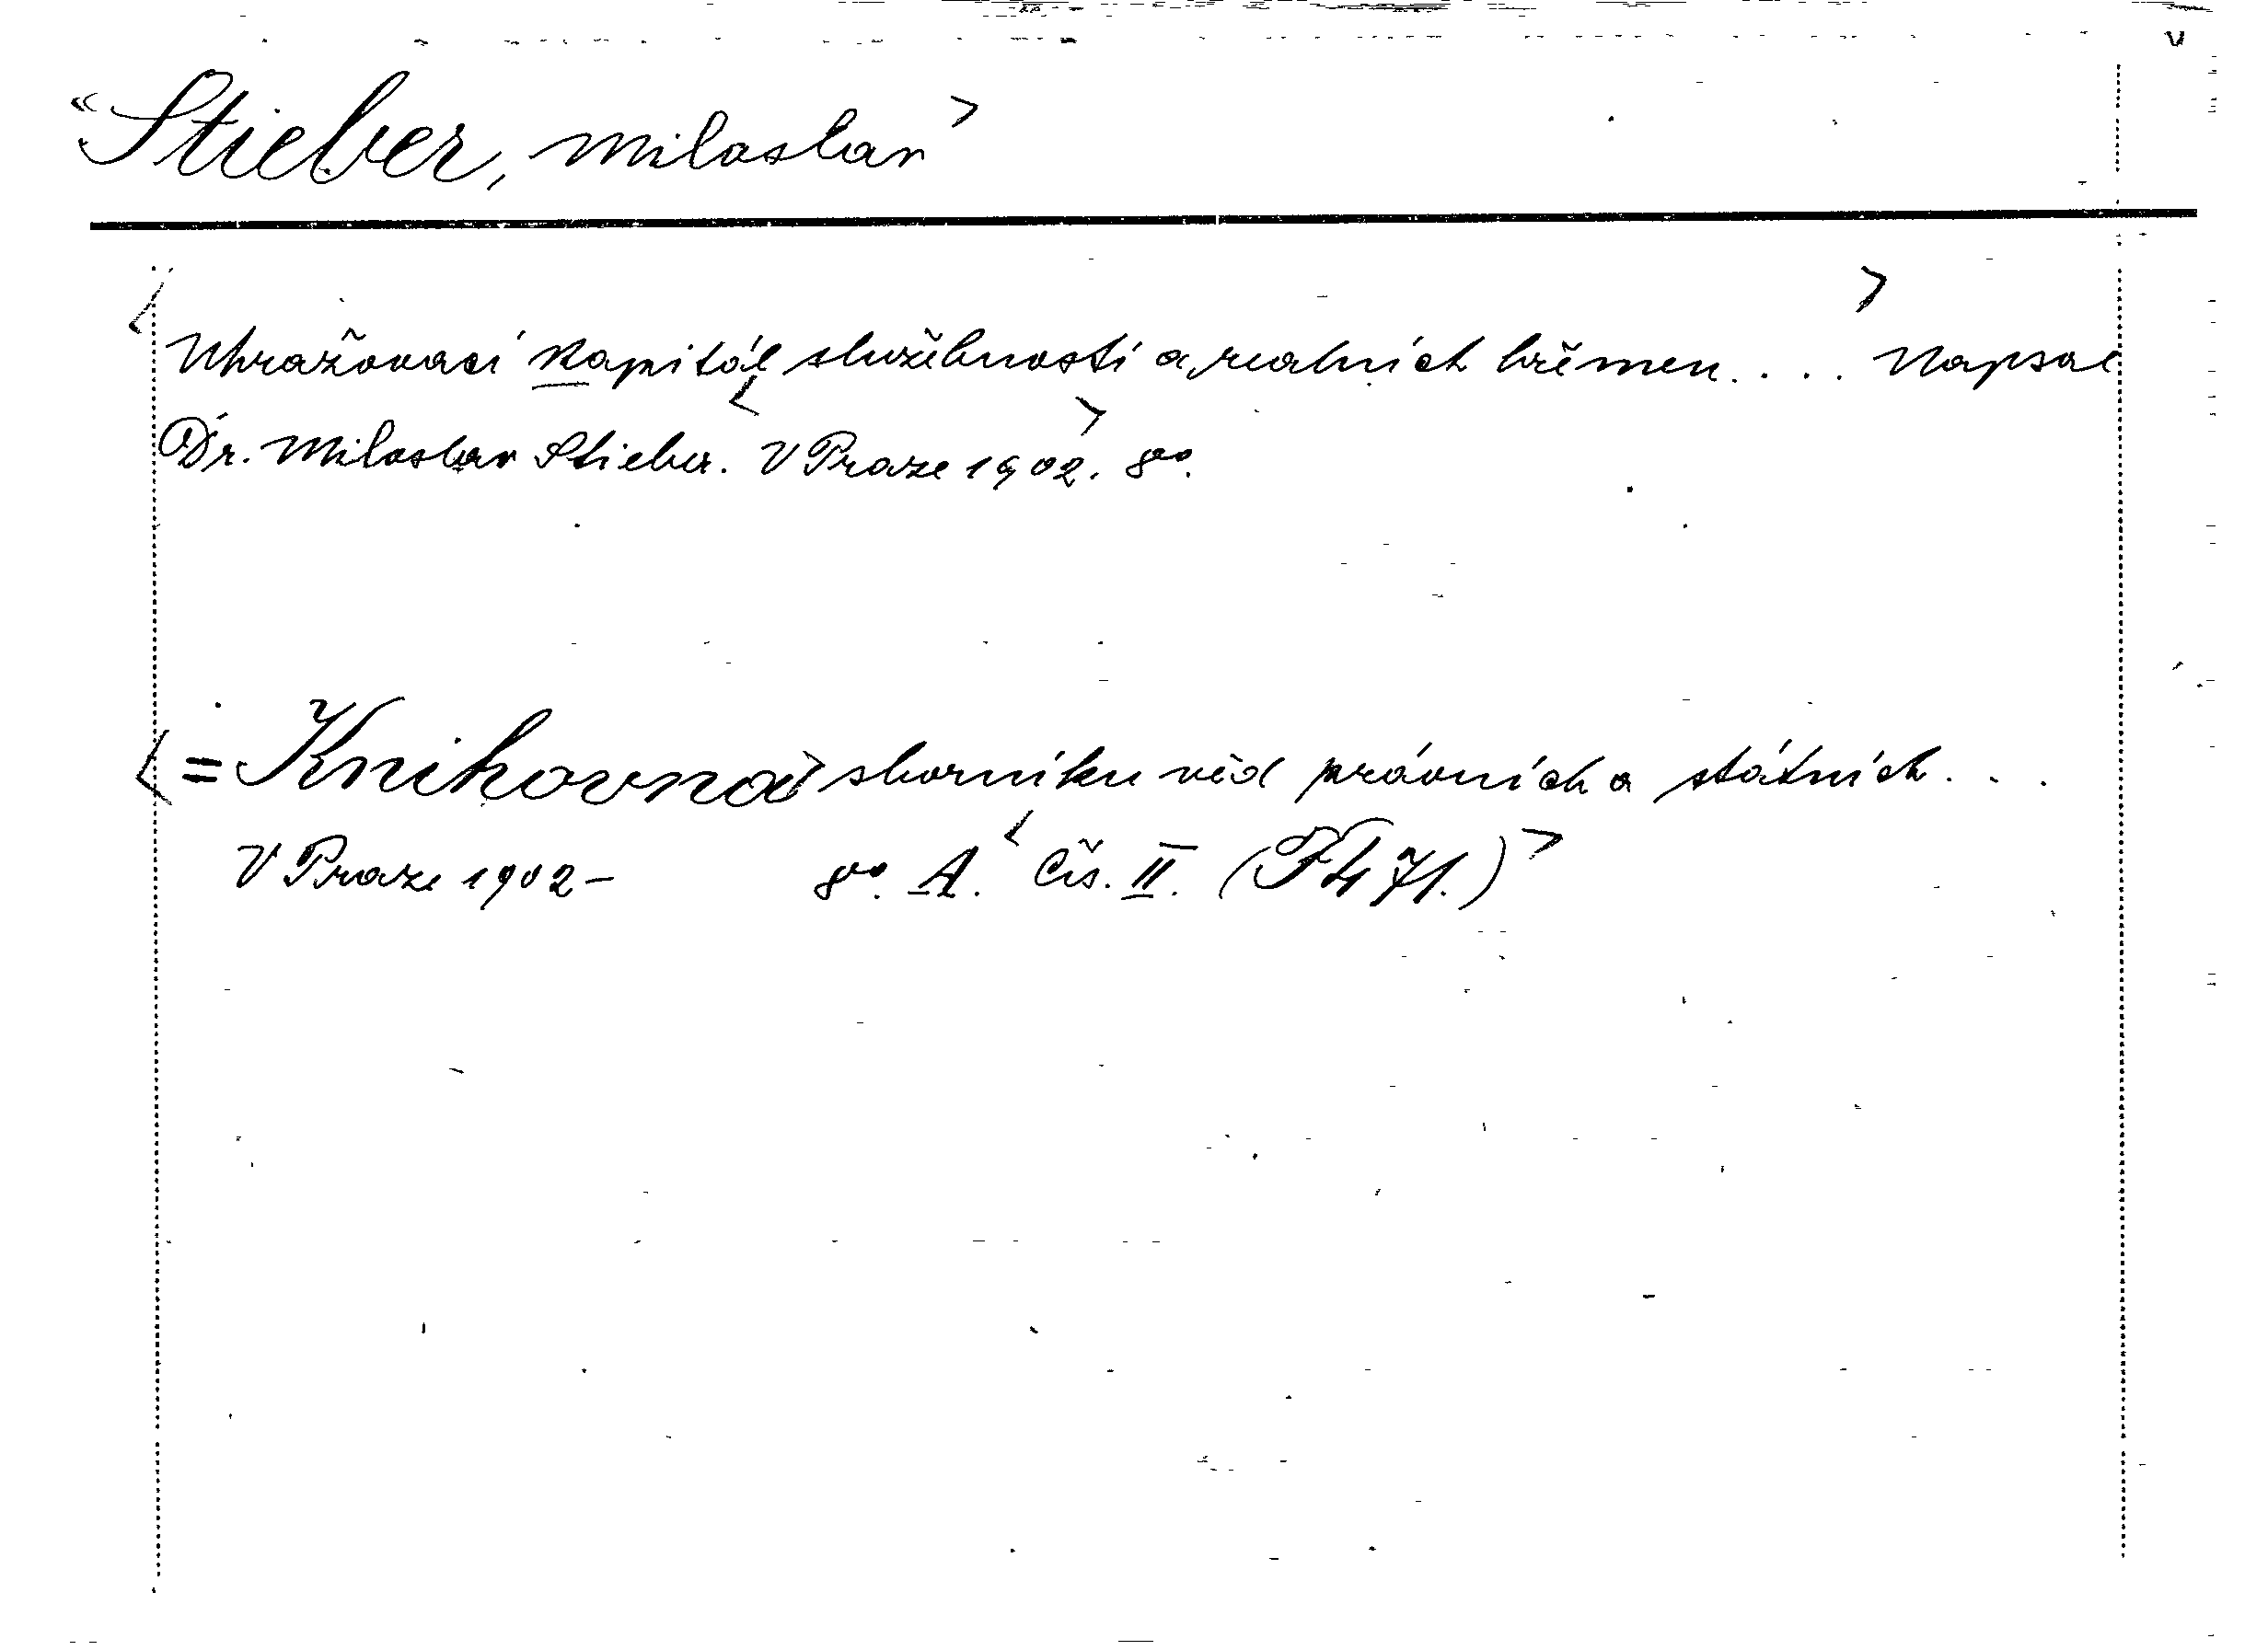 «Stieber, Miloslav>
<Uhražovací Kapitál služebností a realních břemen. . . .> Napsal
Dr. Miloslav Stieber. <V Praze 1902.> 8°.
<=Knihovna> sborníku věd právních a státních . . .
V Praze 1902– 8°. A. <Čís. II. (F 471.)>